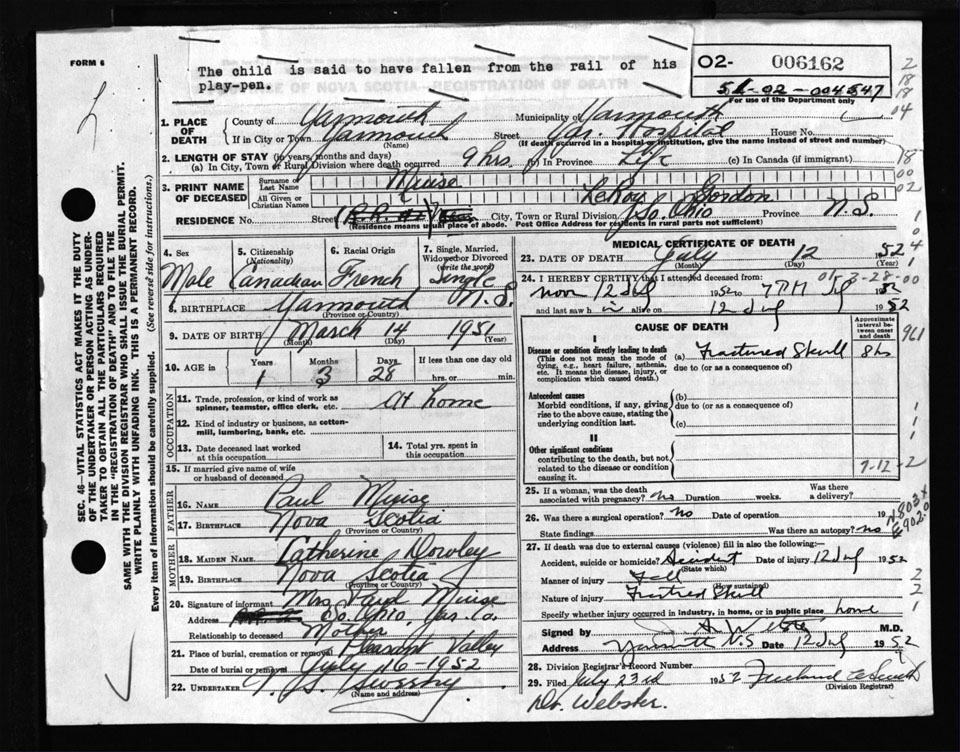 FORM 6
The child is said to have fallen from the rail of his
play-pen.
O2- 006162
52-02-004547
For use of the Department only
OF NOVA SCOTIA—REGISTRATION OF DEATH
1. PLACE OF DEATH County of Yarmouth Municipality of Yarmouth
If in City or Town Yarmouth (Name) Street Yar. Hospital House No.
(If death occurred in a hospital or institution, give the name instead of street and number)
2. LENGTH OF STAY (in years, months and days)
(a) In City, Town or Rural Division where death occurred 9 hrs. (b) In Province Life (c) In Canada (if immigrant)
3. PRINT NAME OF DECEASED Surname or Last Name Muise
All Given or Christian Names LeRoy Gordon
RESIDENCE No. Street City, Town or Rural Division So. Ohio Province N.S.
(Residence means usual place of abode. Post Office Address for residents in rural parts not sufficient)
4. Sex Male
5. Citizenship (Nationality) Canadian
6. Racial Origin French
7. Single, Married, Widowed or Divorced (write the word) Single
8. BIRTHPLACE Yarmouth N.S.
(Province or Country)
9. DATE OF BIRTH March 14 1951
(Month) (Day) (Year)
10. AGE in Years 1 Months 3 Days 28 If less than one day old hrs. or min.
OCCUPATION
11. Trade, profession, or kind of work as spinner, teamster, office clerk, etc. At home
12. Kind of industry or business, as cotton-mill, lumbering, bank, etc.
13. Date deceased last worked at this occupation
14. Total yrs. spent in this occupation
15. If married give name of wife or husband of deceased
FATHER
16. NAME Paul Muise
17. BIRTHPLACE Nova Scotia
(Province or Country)
MOTHER
18. MAIDEN NAME Catherine Dowley
19. BIRTHPLACE Nova Scotia
(Province or Country)
20. Signature of informant Mrs Paul Muise
Address So. Ohio, Yar. Co.
Relationship to deceased Mother
21. Place of burial, cremation or removal Pleasant Valley
Date of burial or removal July 16-1952
22. UNDERTAKER V. S. Sweeny
(Name and address)
MEDICAL CERTIFICATE OF DEATH
23. DATE OF DEATH July 12 1952
(Month) (Day) (Year)
24. I HEREBY CERTIFY that I attended deceased from
noon 12 July 1952 to 7 PM July 1952
and last saw him alive on 12 July 1952
CAUSE OF DEATH
Approximate interval between onset and death
I
Disease or condition directly leading to death (a) Fractured Skull 8 hs
(This does not mean the mode of dying, e.g., heart failure, asthenia, etc. It means the disease, injury, or complication which caused death.)
due to (or as a consequence of)
Antecedent causes
Morbid conditions, if any, giving rise to the above cause, stating the underlying condition last.
(b)
due to (or as a consequence of)
(c)
II
Other significant conditions
contributing to the death, but not related to the disease or condition causing it.
7-12-2
25. If a woman, was the death associated with pregnancy? No Duration weeks. Was there a delivery?
26. Was there a surgical operation? No Date of operation 19
State findings Was there an autopsy? No
27. If death was due to external causes (violence) fill in also the following:—
Accident, suicide or homicide? Accident Date of injury 12 July 1952
(State which)
Manner of injury Fall
(How sustained)
Nature of injury Fractured Skull
Specify whether injury occurred in industry, in home, or in public place home
Signed by M.D.
Address Yarmouth N.S. Date 12 July 1952
28. Division Registrar's Record Number
29. Filed July 23rd 1952
(Division Registrar)
Dr. Webster.
SEC. 46—VITAL STATISTICS ACT MAKES IT THE DUTY
OF THE UNDERTAKER OR PERSON ACTING AS UNDER-
TAKER TO OBTAIN ALL THE PARTICULARS REQUIRED
IN THE "REGISTRATION OF DEATH" AND TO FILE THE
SAME WITH THE DIVISION REGISTRAR WHO SHALL ISSUE THE BURIAL PERMIT.
WRITE PLAINLY WITH UNFADING INK. THIS IS A PERMANENT RECORD.
Every item of information should be carefully supplied. (See reverse side for instructions.)